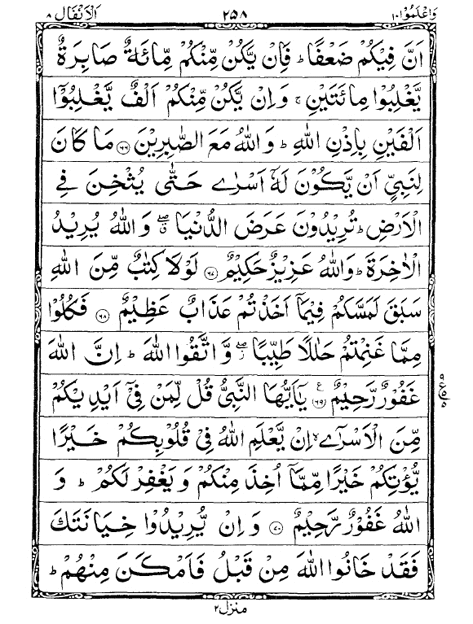 وَاعْلَمُوْۤا ١٠ ٢٥٨ اَلْاَنْفَال ٨
اَنَّ فِیْكُمْ ضَعْفًا ؕ فَاِنْ یَّكُنْ مِّنْكُمْ مِّائَةٌ صَابِرَةٌ
یَّغْلِبُوْا مِائَتَیْنِ ۚ وَاِنْ یَّكُنْ مِّنْكُمْ اَلْفٌ یَّغْلِبُوْۤا
اَلْفَیْنِ بِاِذْنِ اللّٰهِ ؕ وَاللّٰهُ مَعَ الصّٰبِرِیْنَ ﴿٦٦﴾ مَا كَانَ
لِنَبِیٍّ اَنْ یَّكُوْنَ لَهٗۤ اَسْرٰی حَتّٰی یُثْخِنَ فِی
الْاَرْضِ ؕ تُرِیْدُوْنَ عَرَضَ الدُّنْیَا ۖۗ وَاللّٰهُ یُرِیْدُ
الْاٰخِرَةَ ؕ وَاللّٰهُ عَزِیْزٌ حَكِیْمٌ ﴿٦٧﴾ لَوْلَا كِتٰبٌ مِّنَ اللّٰهِ
سَبَقَ لَمَسَّكُمْ فِیْمَاۤ اَخَذْتُمْ عَذَابٌ عَظِیْمٌ ﴿٦٨﴾ فَكُلُوْا
مِمَّا غَنِمْتُمْ حَلٰلًا طَیِّبًا ۖؗ وَّاتَّقُوا اللّٰهَ ؕ اِنَّ اللّٰهَ
غَفُوْرٌ رَّحِیْمٌ ﴿٦٩﴾ ع یٰۤاَیُّهَا النَّبِیُّ قُلْ لِّمَنْ فِیْۤ اَیْدِیْكُمْ
مِّنَ الْاَسْرٰۤی ۙ اِنْ یَّعْلَمِ اللّٰهُ فِیْ قُلُوْبِكُمْ خَیْرًا
یُّؤْتِكُمْ خَیْرًا مِّمَّاۤ اُخِذَ مِنْكُمْ وَیَغْفِرْ لَكُمْ ؕ وَ
اللّٰهُ غَفُوْرٌ رَّحِیْمٌ ﴿٧٠﴾ وَاِنْ یُّرِیْدُوْا خِیَانَتَكَ
فَقَدْ خَانُوا اللّٰهَ مِنْ قَبْلُ فَاَمْكَنَ مِنْهُمْ ؕ
منزل ٢